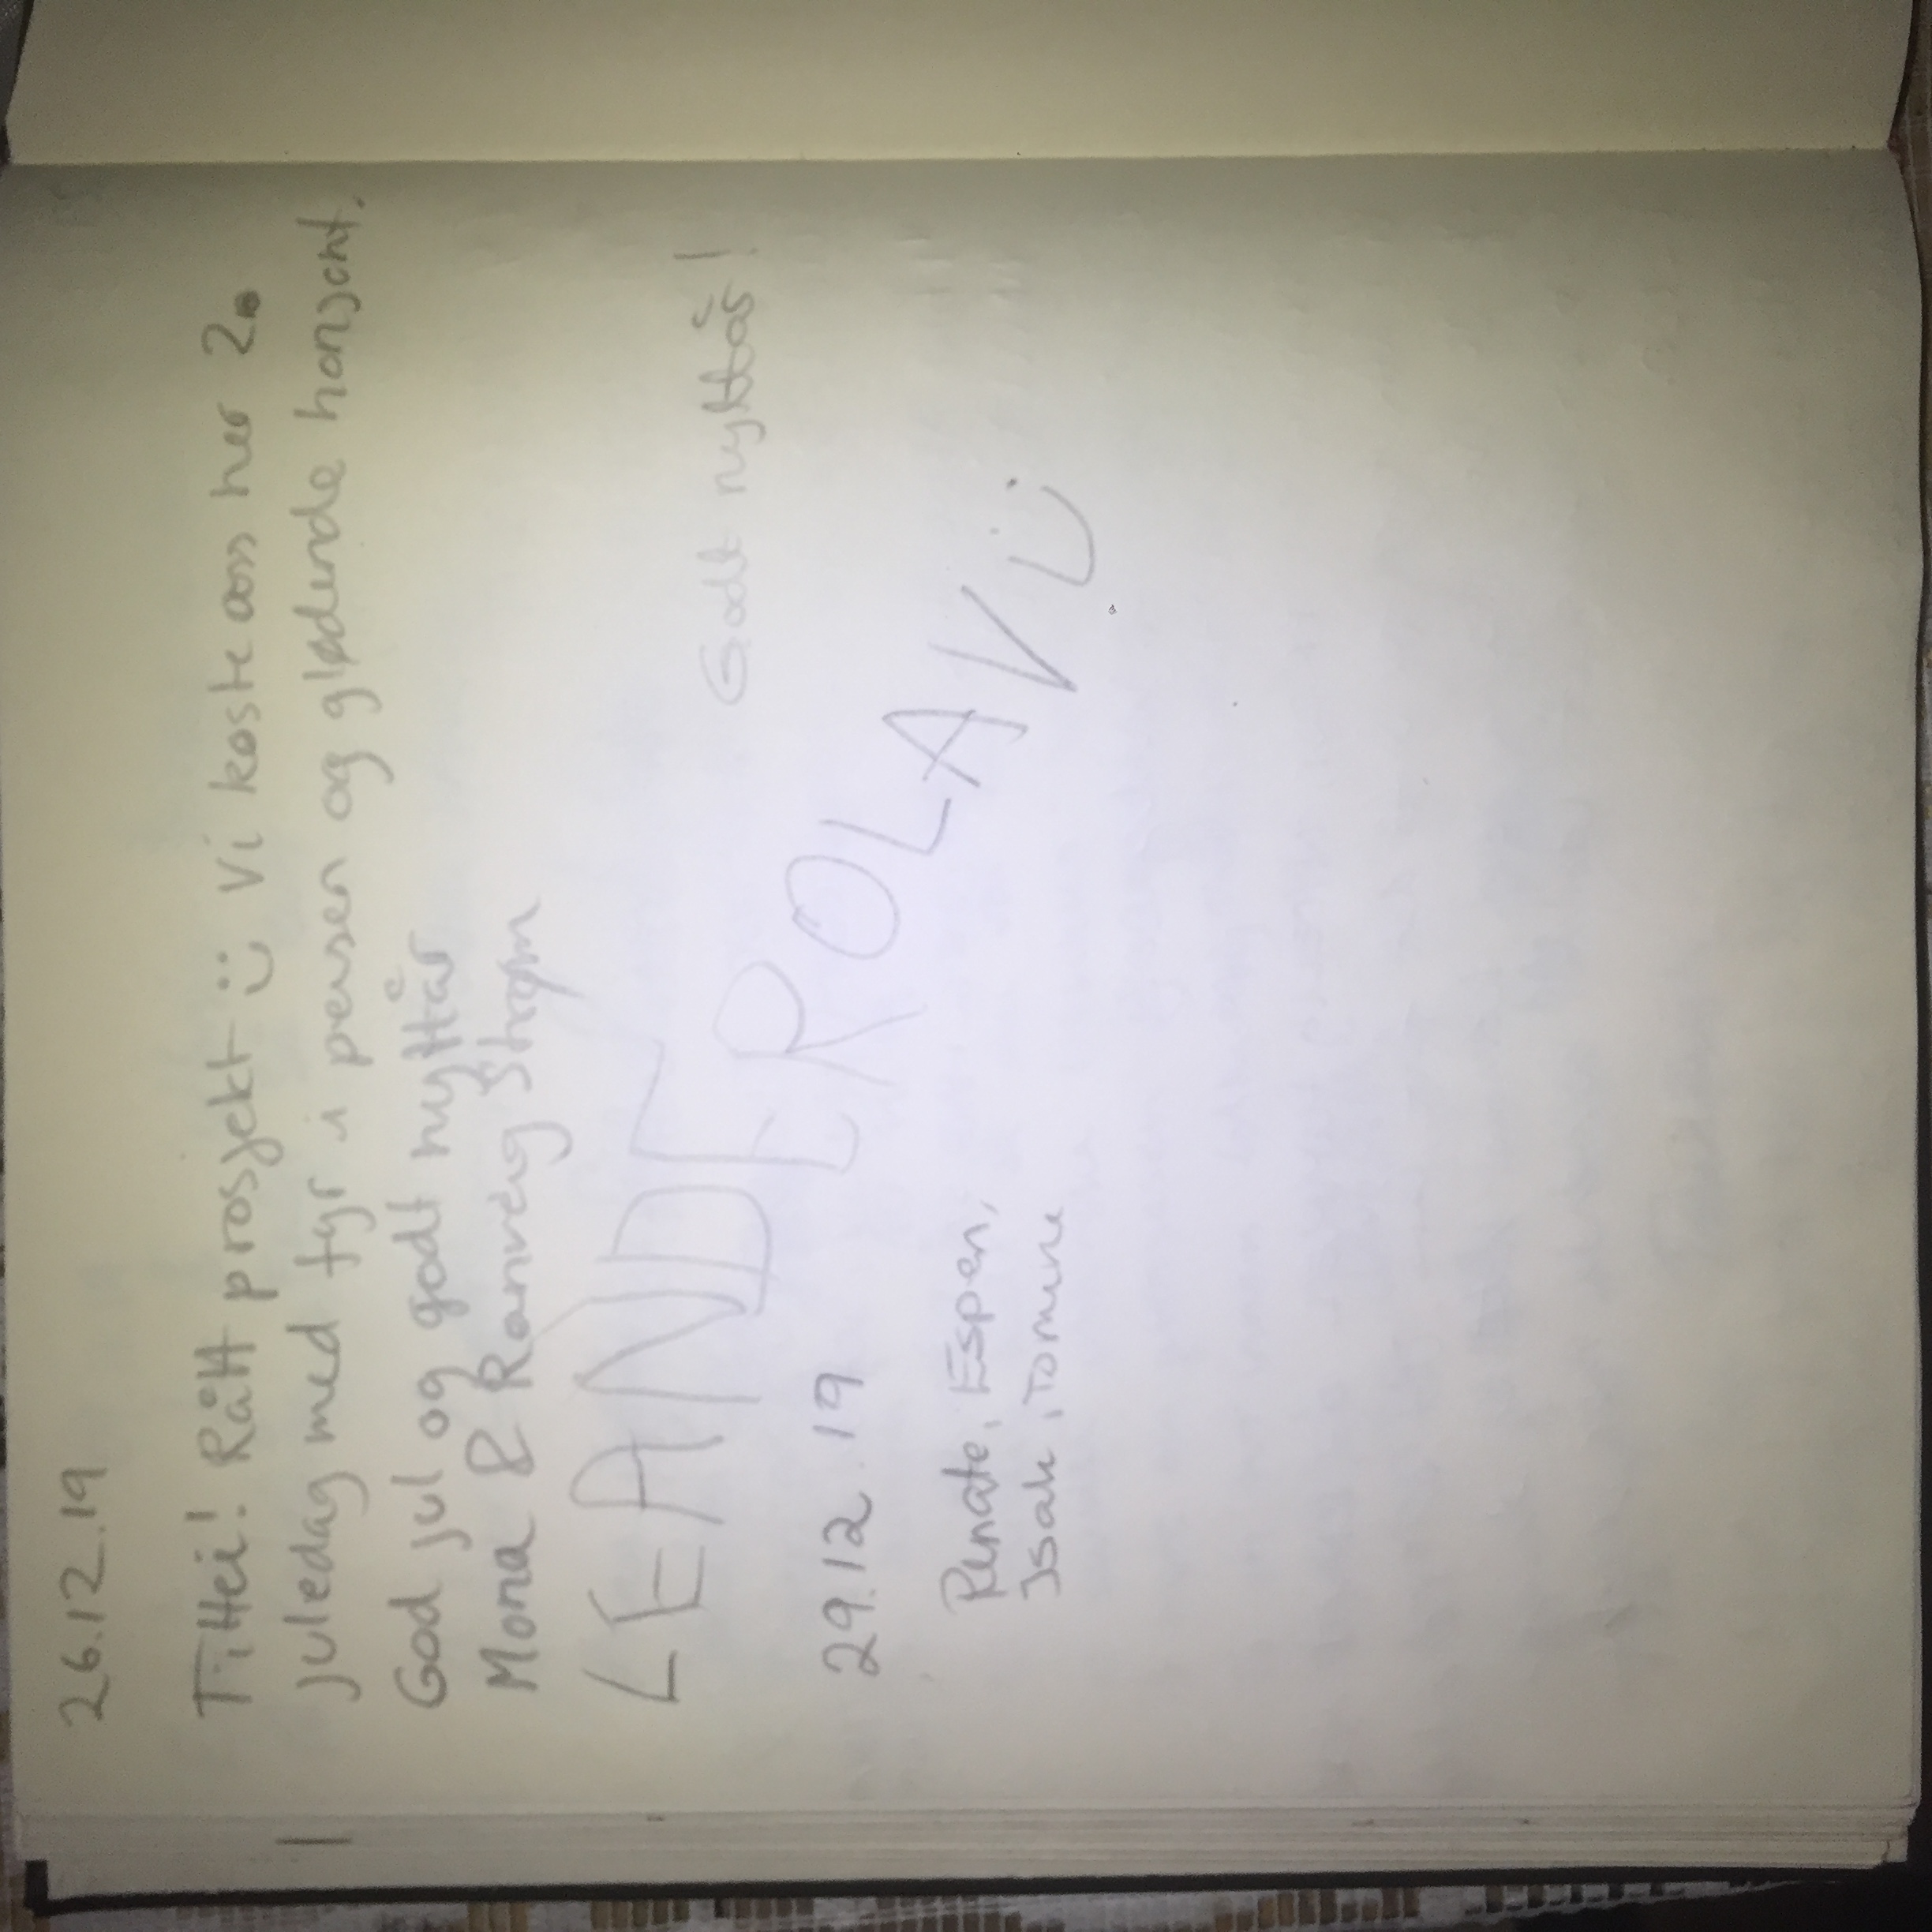 26.12.19
Tittei! Rått prosjekt :) Vi koste oss her 2.
juledag med fyr i peisen og glødende horisont.
God jul og godt nyttår
Mona & Rannveig Strøm
Godt nyttår!
LEANDER OLAV :)
29.12.19
Renate, Espen,
Isak, Tomine